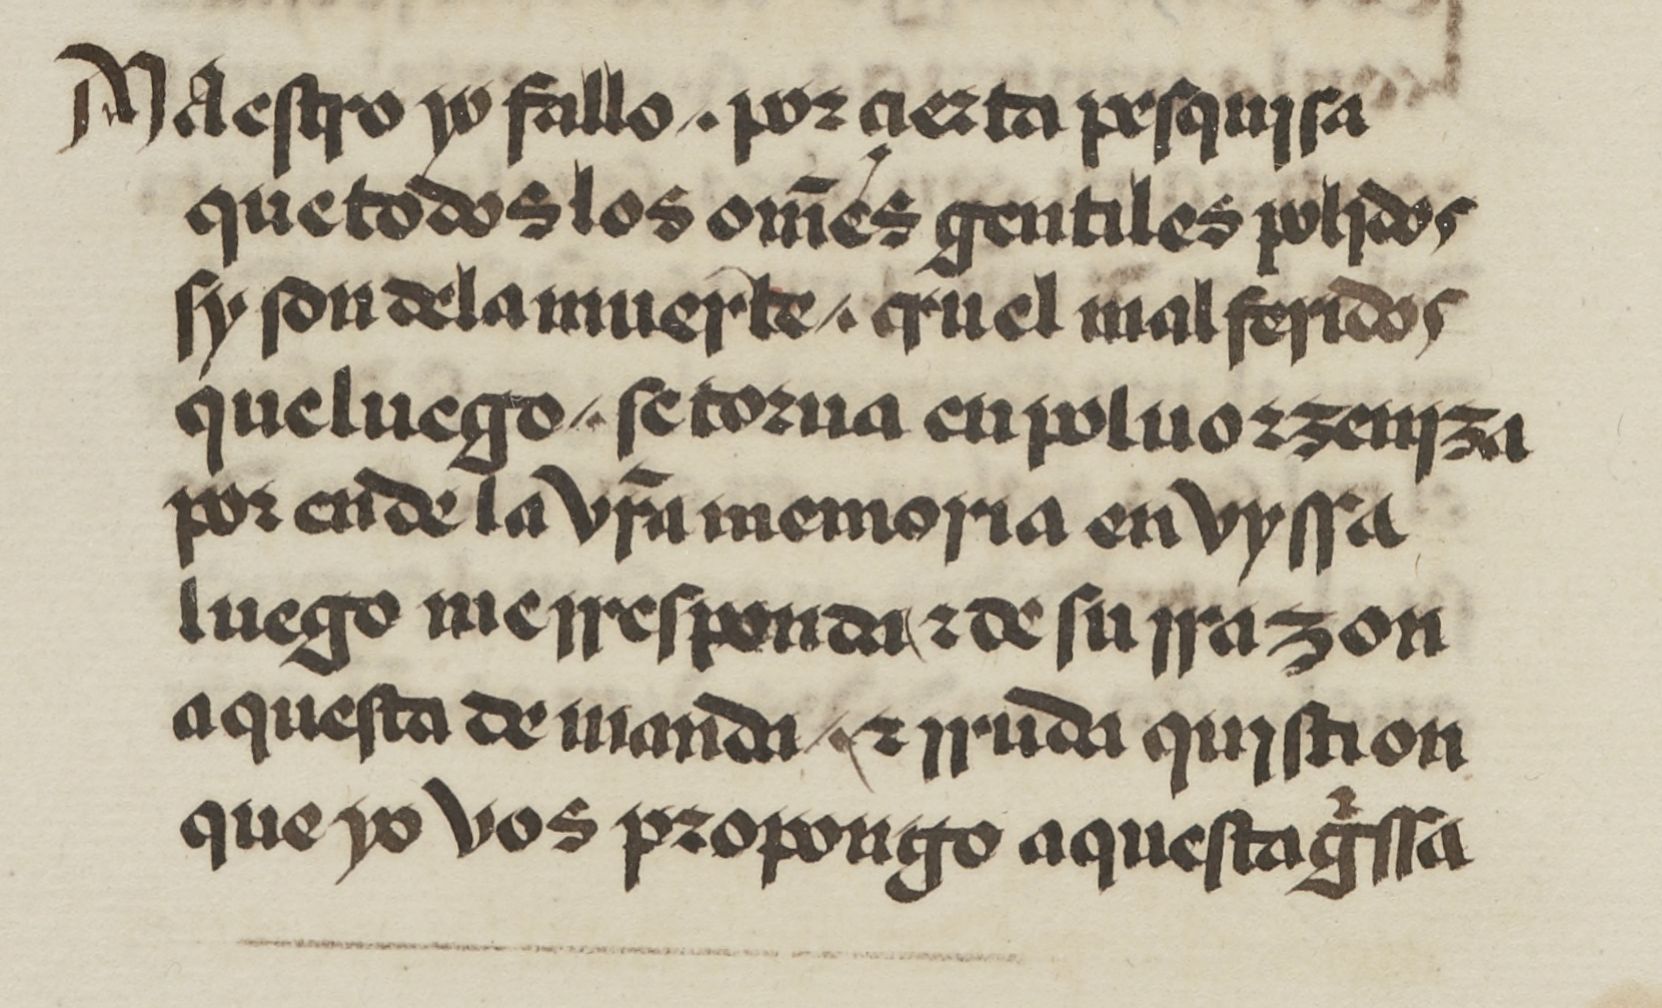 Maestro yo fallo /. por çierta pesquisa
que todos los om̄es gentiles polidos
sy son de la muerte /. cruel mal feridos
que luego /. se torna en poluo ⁊ zeniza
por ende la vr̄a memoria en vyssa
luego me rresponda ⁊ de su rrazon
aquesta demanda /. ⁊ rruda quistion
que yo vos propongo aquesta gͥssa